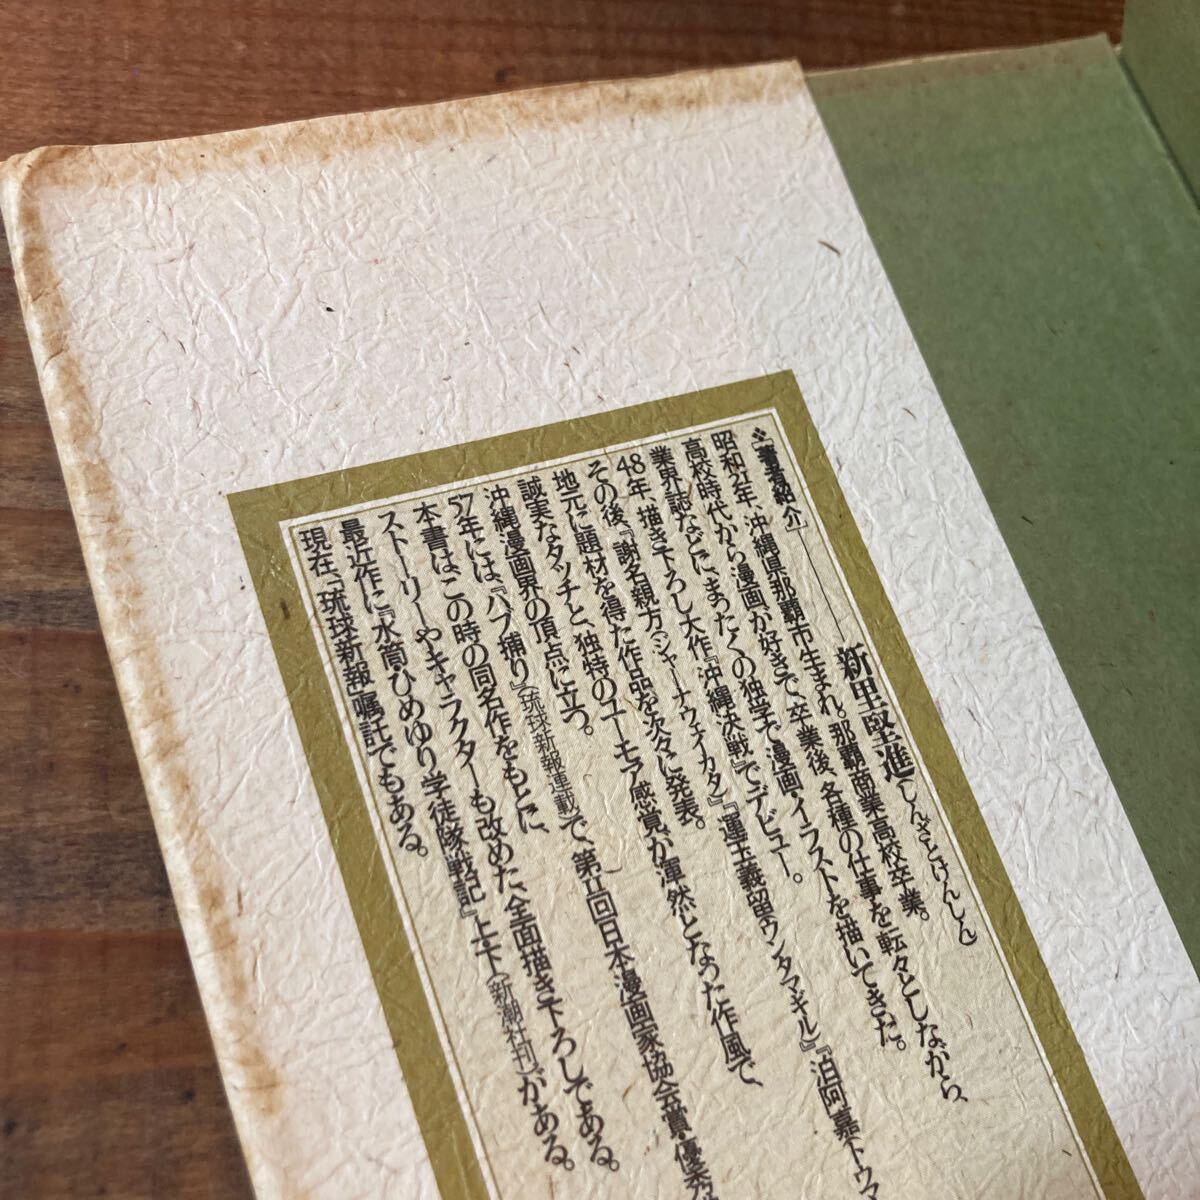 ❖［著者紹介］――新里堅進（しんざとけんしん）
昭和21年、沖縄県那覇市生まれ。那覇商業高校卒業。
高校時代から漫画が好きで、卒業後、各種の仕事を転々としながら、
業界誌などに、まったくの独学で漫画・イラストを描いてきた。
48年、描き下ろし大作『沖縄決戦』でデビュー。
その後、『謝名親方（ジャーナウェイカタ）』『運玉義留（ウンタマギル）』『泊阿嘉（トゥマ
地元に題材を得た作品を次々に発表。
誠実なタッチと、独特のユーモア感覚が渾然となった作風で、
沖縄漫画界の頂点に立つ。
57年には、『ハブ捕り』（琉球新報連載）で、第11回日本漫画家協会賞・優秀
本書は、この時の同名作をもとに、
ストーリーやキャラクターも改めた、全面描き下ろしである。
最近作に『水筒・ひめゆり学徒隊戦記』上・下（新潮社刊）がある。
現在、「琉球新報」嘱託でもある。